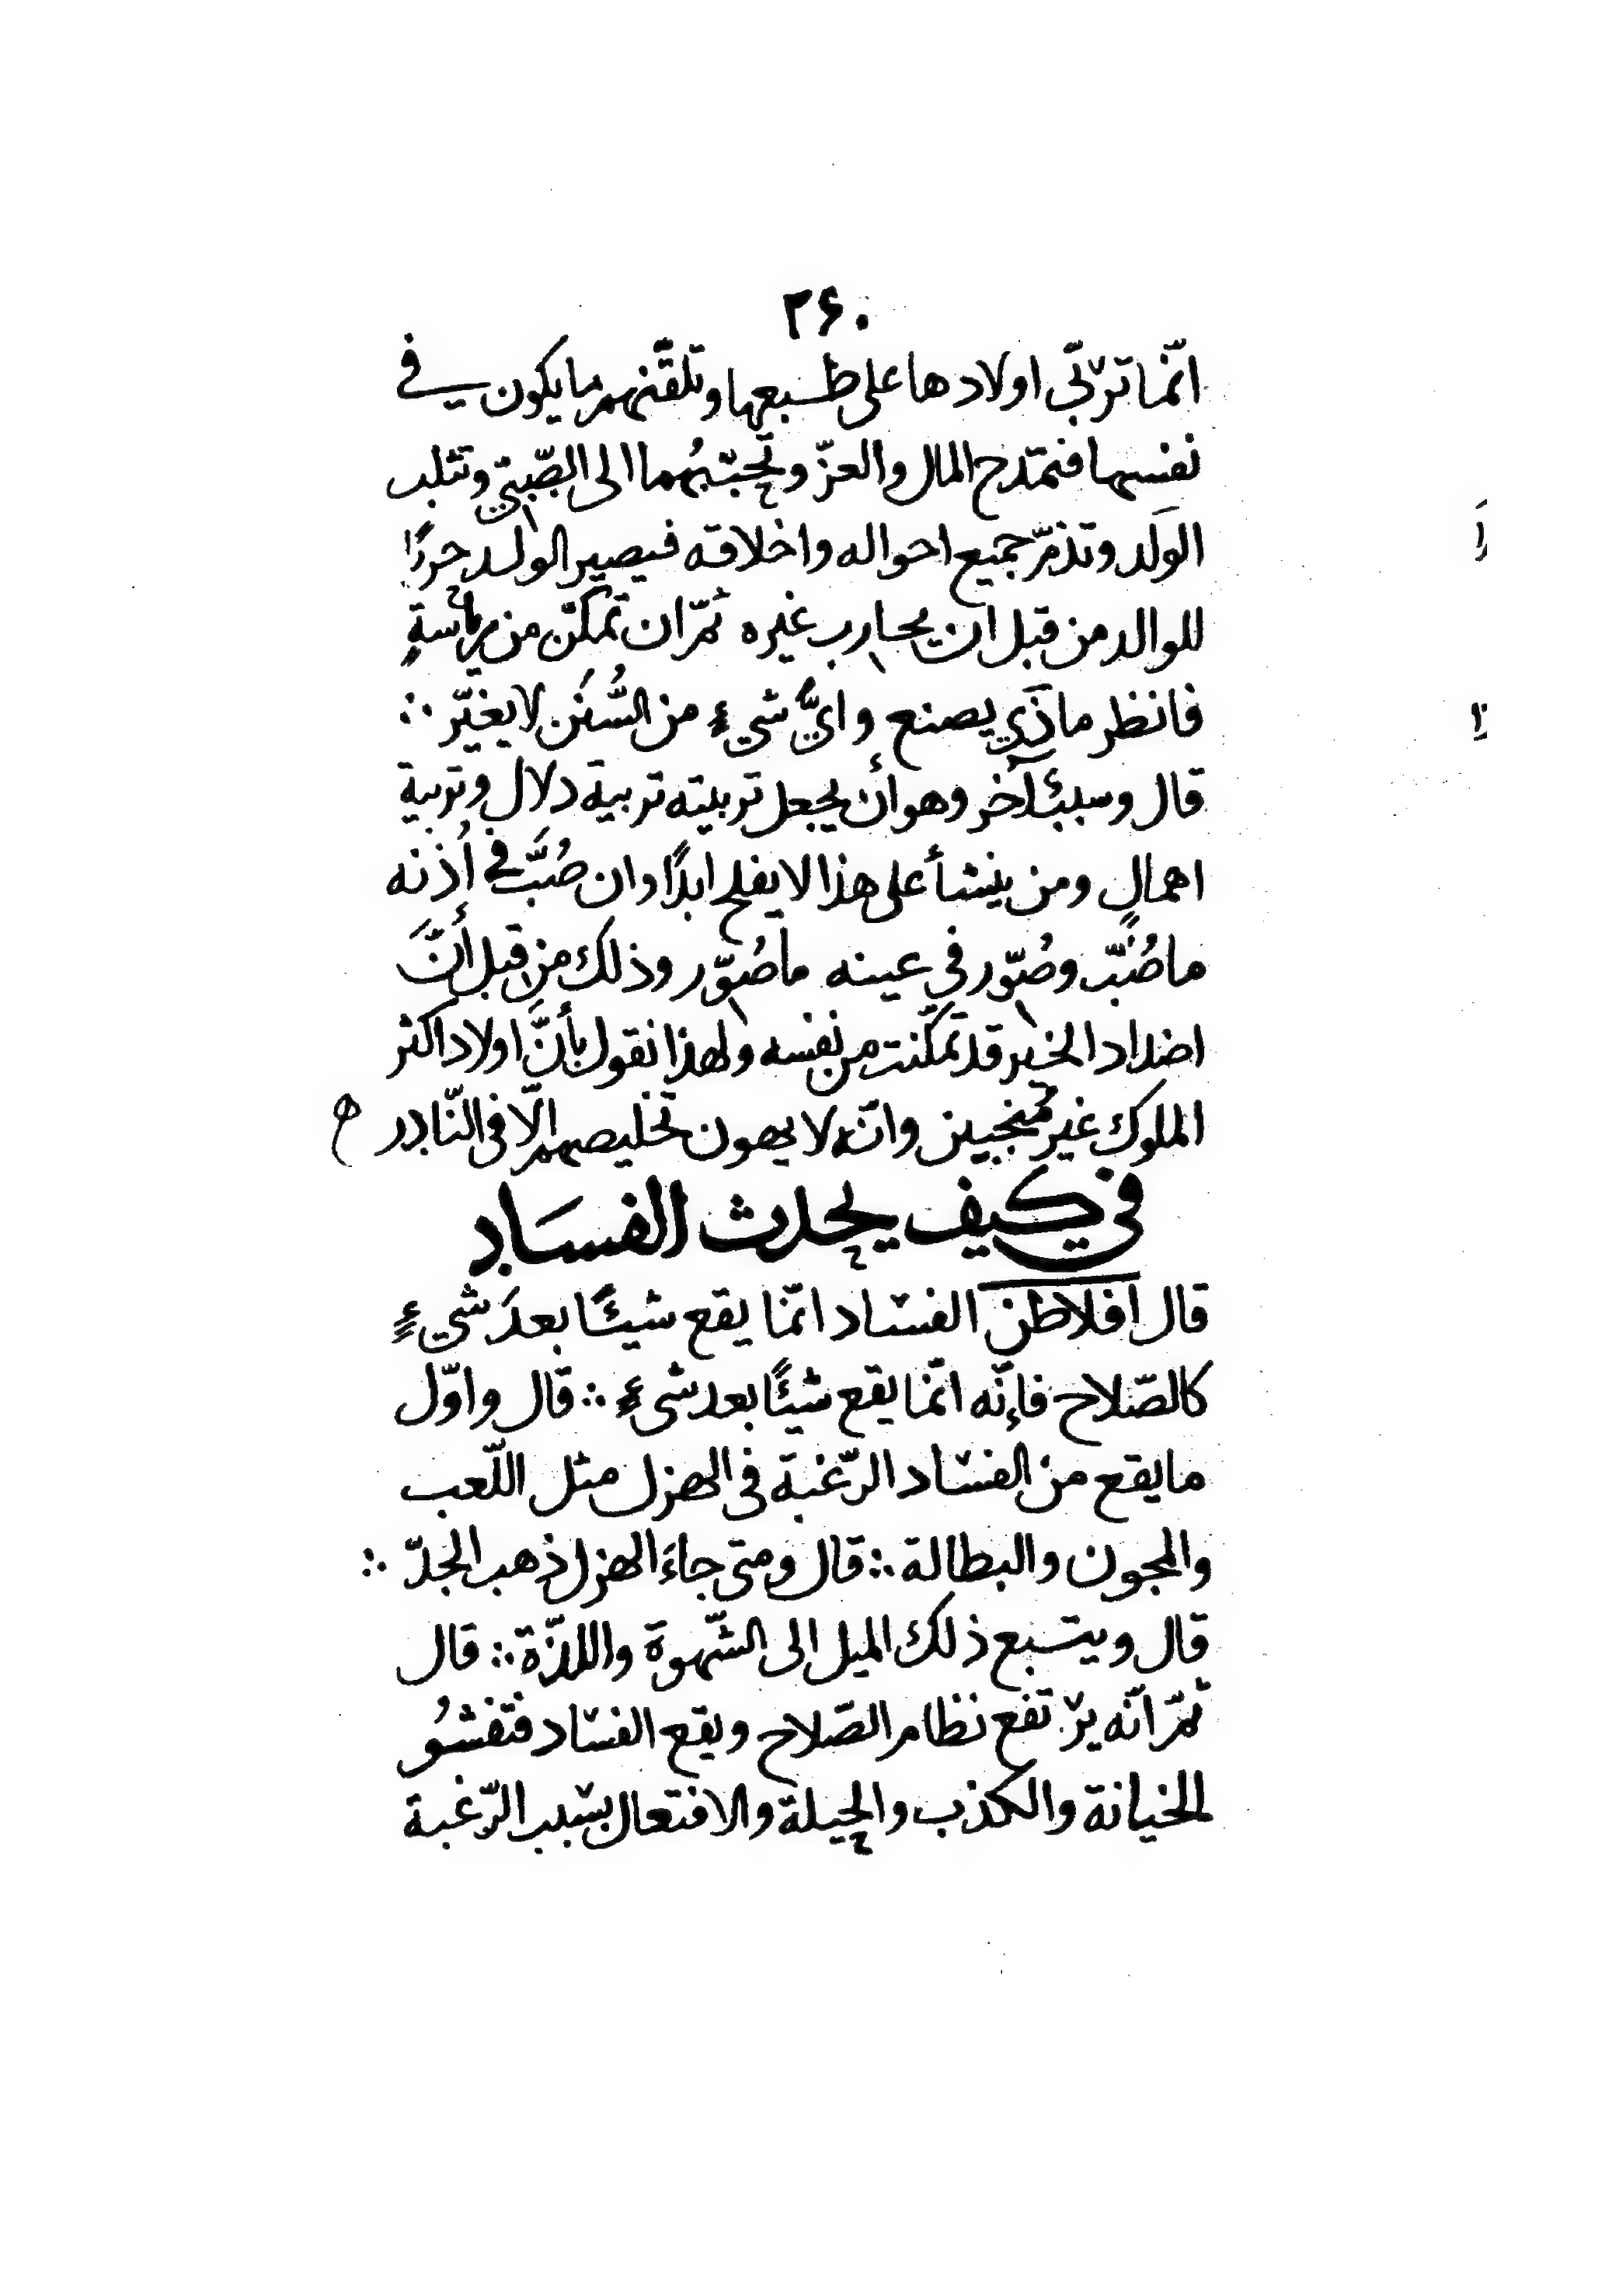 ٢۶٠
انّما تربّي اولادها على طبعها وتلقّنهم ما يكون في
نفسها فتمتدح المال والعزّ وتحبّبهما الى الصّبيّ وتثلب
الوَلد وتذمّ جميع احواله واخلاقه فيصير الولد حربًا
للوالد من قبل ان يحارب غيره ثمّ ان تمكّن من رئاسةٍ
فانظر ماذي يصنع وايُّ شيءٍ من السُّنَن لا يغيّر ∴
قال وسببٌ آخر وهو أن يجعل تربيته تربية دلال وتربية
اهمالٍ ومن ينشأ على هذا لا يفلح ابدًا وان صُبَّ في أُذنه
ما صُبَّ وصُوّر في عينه ما صُوّر وذلك من قبل أنَّ
اضداد الخير قد تمكّنت من نفسه ولهذا نقول بأنَّ اولاد اكثر
الملوك غير مُنجبين وانّه لا يهون تخليصهم الّا في النّادر ه
في كيف يحدث الفسَاد
قال افلاطن الفساد انّما يقع شيئًا بعدَ شيءٍ
كالصّلاح فإنّه انّما يقع شيئًا بعد شيءٍ ∴ قال واوّل
ما يقع من الفساد الرّغبة في الهزل مثل اللّعب
والمجون والبطالة ∴ قال ومتى جاءَ الهزل ذهب الجدّ ∴
قال ويتبع ذلك الميل الى الشّهوة واللذّة ∴ قال
ثمّ انّه يرتفع نظام الصّلاح ويقع الفساد فتفشُو
الخيانة والكذب والحيلة والافتعال بسبب الرّغبة